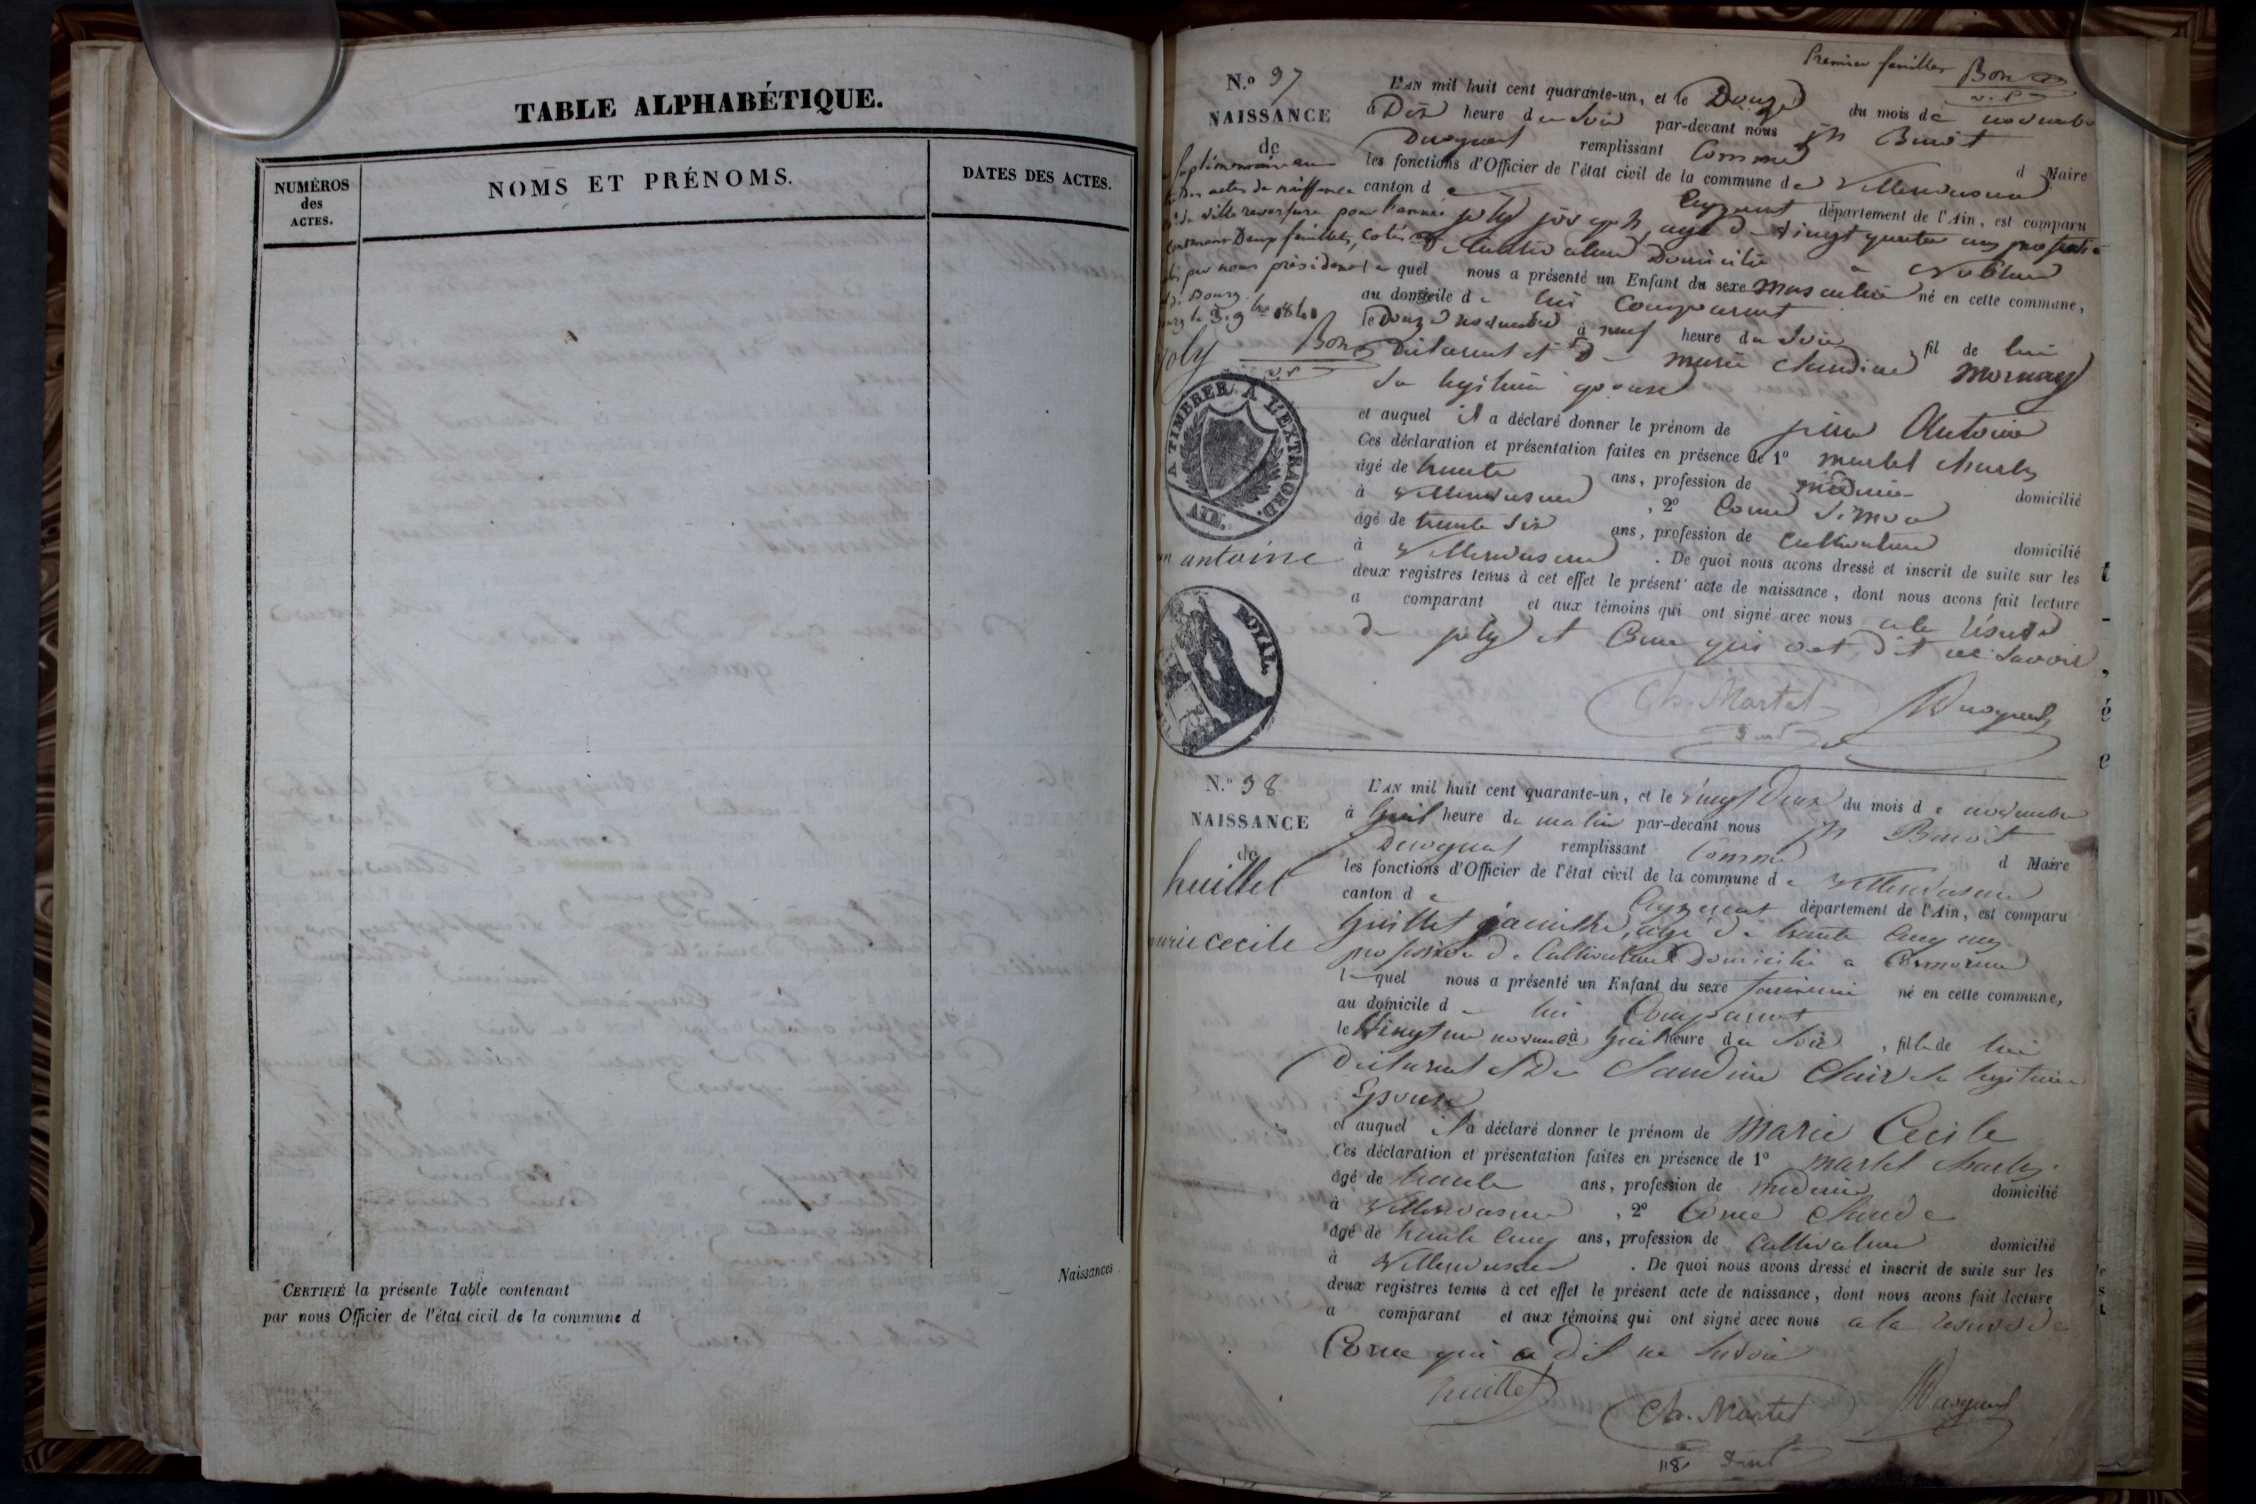 TABLE ALPHABÉTIQUE.
NUMÉROS
des
ACTES.
NOMS ET PRÉNOMS.
DATES DES ACTES.
CERTIFIÉ la présente Table contenant
par nous Officier de l'état civil de la commune d
Naissances
Premier feuillet Bon
N.º 37
NAISSANCE
de
supplémentaire au
des actes de naissance
de Villereversure pour l'année
contenant Deux feuillets, cotés et
par nous président
Bourg
le 9 bre 1841
Joly
Bon
A TIMBRER A L'EXTRAORD.
AIN.
antoine
ROYAL
L'AN mil huit cent quarante-un, et le Douze du mois de novembre
à Dix heure du Soir par-devant nous jh Benoit
Duroquat remplissant Comme d Maire
les fonctions d'Officier de l'état civil de la commune de Villereversure
canton de Ceyzeriat département de l'Ain, est comparu
joly joseph, agé de vingt quatre ans profession
de Cultivateur Domicilié a Noblens
lequel nous a présenté un Enfant du sexe Masculin né en cette commune,
au domicile de lui Comparant
le Douze novembre à neuf heure du Soir fil de lui
Déclarant et de marie Claudine Mornay
Sa legitime epouse
et auquel il a déclaré donner le prénom de jean Antoine
Ces déclaration et présentation faites en présence de 1º martel charles
âgé de trente ans, profession de médecin domicilié
à Villereversure, 2º Corne Simon
âgé de trente six ans, profession de Cultivateur domicilié
à Villereversure. De quoi nous avons dressé et inscrit de suite sur les
deux registres tenus à cet effet le présent acte de naissance, dont nous avons fait lecture
a comparant et aux témoins qui ont signé avec nous a la réserve
de joly et Corne qui ont dit ne Savoir
Ch. Martel
Duroquat
N.º 38
NAISSANCE
de
huillet
marie cecile
L'AN mil huit cent quarante-un, et le vingt Deux du mois de novembre
à huit heure du matin par-devant nous jh Benoit
Duroquat remplissant Comme d Maire
les fonctions d'Officier de l'état civil de la commune de Villereversure
canton de Ceyzeriat département de l'Ain, est comparu
huillet jacinthe, agé de trente cinq ans
profession de Cultivateur Domicilié a Cormorens
lequel nous a présenté un Enfant du sexe feminin né en cette commune,
au domicile de lui Comparant
le Vingt un novembre à huit heure du Soir, fille de lui
Déclarant et De Claudine Clair Sa legitime
Epouse
et auquel il a déclaré donner le prénom de Marie Cecile
Ces déclaration et présentation faites en présence de 1º martel charles
âgé de trente ans, profession de medecin domicilié
à Villereversure, 2º Corne Claude
âgé de trente cinq ans, profession de Cultivateur domicilié
à Villereversure. De quoi nous avons dressé et inscrit de suite sur les
deux registres tenus à cet effet le présent acte de naissance, dont nous avons fait lecture
a comparant et aux témoins qui ont signé avec nous a la reserve de
Corne qui a Dit ne Savoir
huillet
Ch. Martel
Duroquat
118